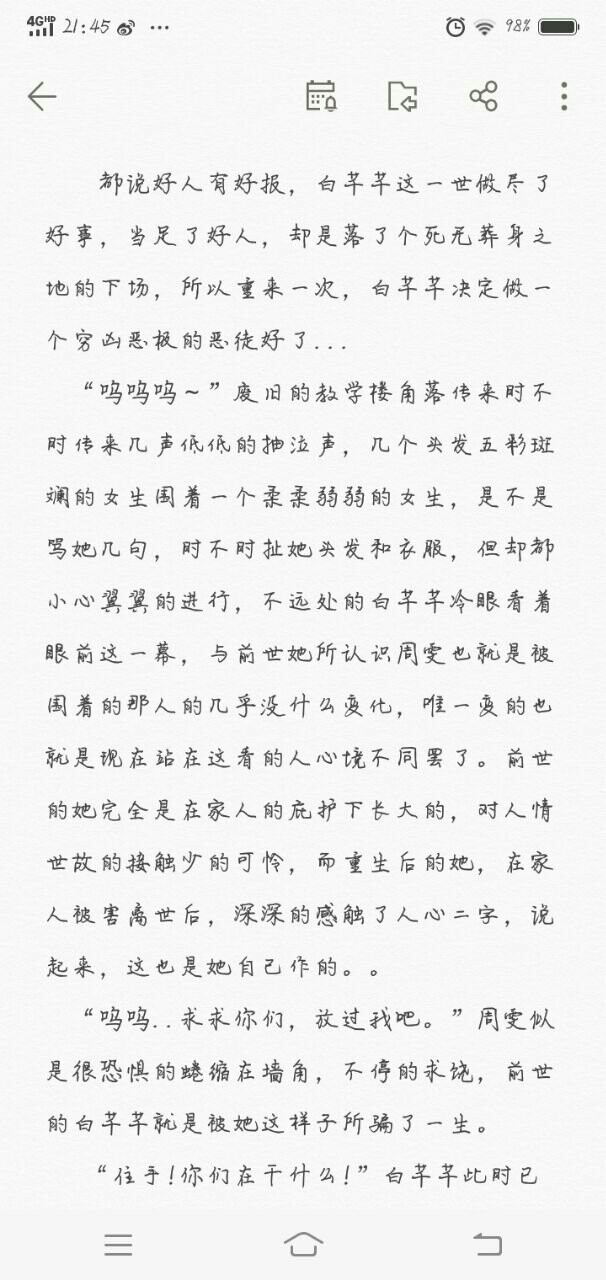 4G HD 21:45 98%
都说好人有好报，白芊芊这一世做尽了
好事，当足了好人，却是落了个死无葬身之
地的下场，所以重来一次，白芊芊决定做一
个穷凶恶极的恶徒好了...
“呜呜呜~”废旧的教学楼角落传来时不
时传来几声低低的抽泣声，几个头发五彩斑
斓的女生围着一个柔柔弱弱的女生，是不是
骂她几句，时不时扯她头发和衣服，但却都
小心翼翼的进行，不远处的白芊芊冷眼看着
眼前这一幕，与前世她所认识周雯也就是被
围着的那人的几乎没什么变化，唯一变的也
就是现在站在这看的人心境不同罢了。前世
的她完全是在家人的庇护下长大的，对人情
世故的接触少的可怜，而重生后的她，在家
人被害离世后，深深的感触了人心二字，说
起来，这也是她自己作的。。
“呜呜..求求你们，放过我吧。”周雯似
是很恐惧的蜷缩在墙角，不停的求饶，前世
的白芊芊就是被她这样子所骗了一生。
“住手!你们在干什么!”白芊芊此时已